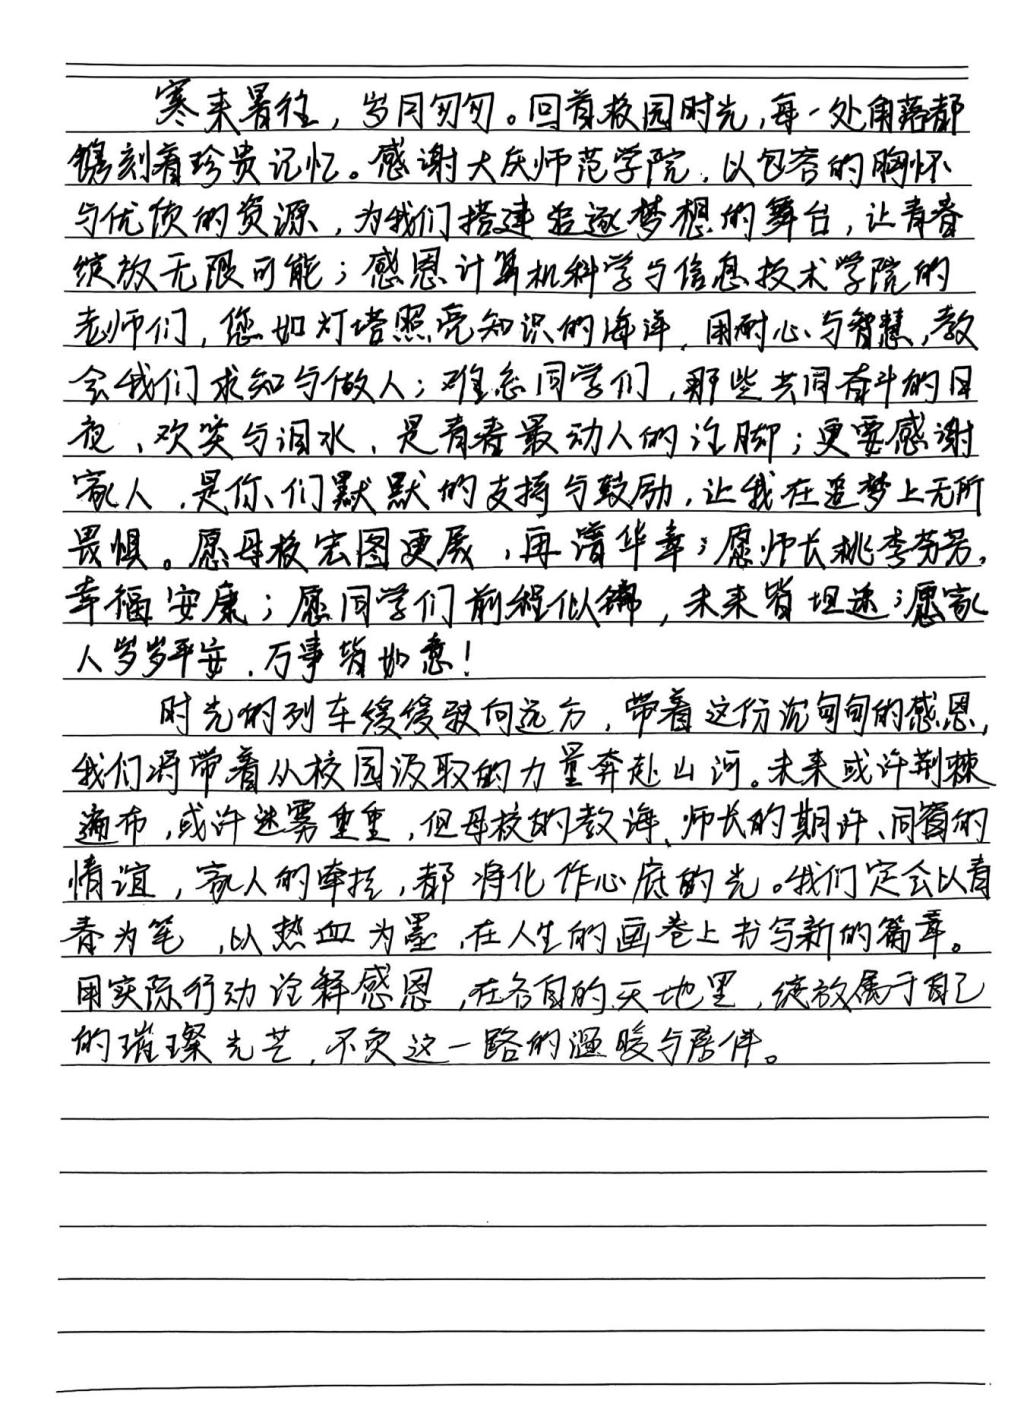 寒来暑往，岁月匆匆。回首校园时光，每一处角落都
镌刻着珍贵记忆。感谢大庆师范学院，以包容的胸怀
与优质的资源，为我们搭建追逐梦想的舞台，让青春
绽放无限可能；感恩计算机科学与信息技术学院的
老师们，您如灯塔照亮知识的海洋，用耐心与智慧，教
会我们求知与做人；难忘同学们，那些共同奋斗的日
夜、欢笑与泪水，是青春最动人的注脚；更要感谢
家人，是你们默默的支持与鼓励，让我在追梦上无所
畏惧。愿母校宏图更展，再谱华章；愿师长桃李芬芳，
幸福安康；愿同学们前程似锦，未来皆坦途；愿家
人岁岁平安，万事皆如意！
时光的列车缓缓驶向远方，带着这份沉甸甸的感恩，
我们将带着从校园汲取的力量奔赴山河。未来或许荆棘
遍布，或许迷雾重重，但母校的教诲、师长的期许、同窗的
情谊，家人的牵挂，都将化作心底的光。我们定会以青
春为笔，以热血为墨，在人生的画卷上书写新的篇章。
用实际行动诠释感恩，在各自的天地里，绽放属于自己
的璀璨光芒，不负这一路的温暖与陪伴。